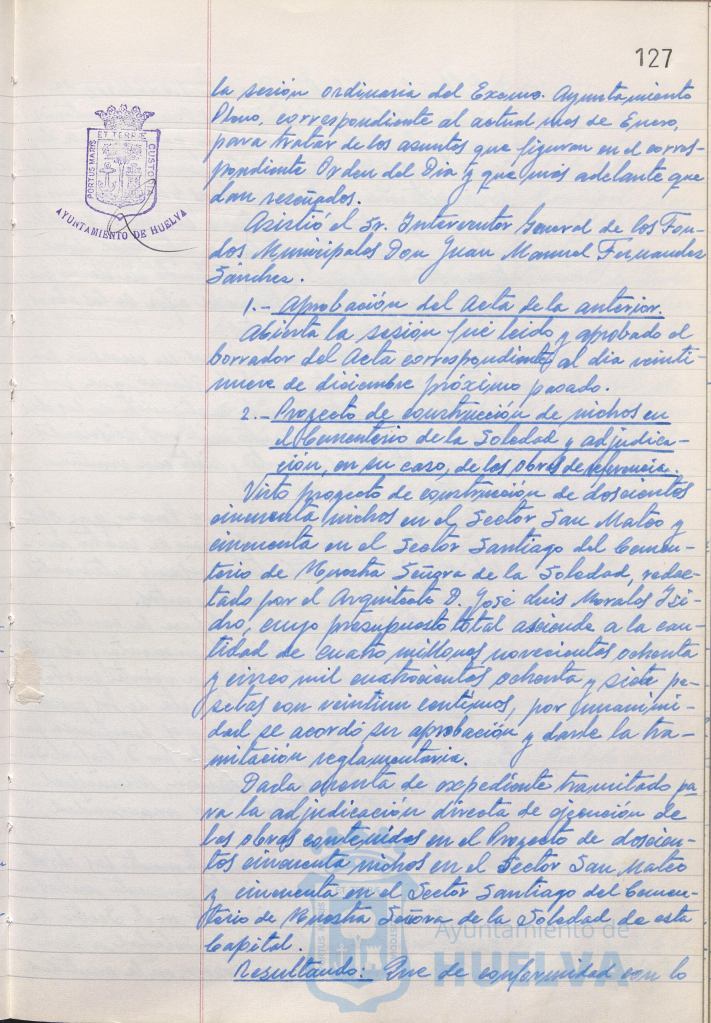 127
PORTUS MARIS ET TERRÆ CUSTODIA
AYUNTAMIENTO DE HUELVA
la sesión ordinaria del Excmo. Ayuntamiento
Pleno, correspondiente al actual mes de Enero,
para tratar de los asuntos que figuran en el corres-
pondiente Orden del Dia y que más adelante que
dan reseñados.
Asistió el Sr. Interventor General de los Fon-
dos Municipales Don Juan Manuel Fernandez
Sánchez.
1.- Aprobación del Acta de la anterior.
Abierta la sesión fué leido y aprobado el
borrador del Acta correspondiente al dia veinti-
nueve de diciembre próximo pasado.
2.- Proyecto de construcción de nichos en
el Cementerio de la Soledad y adjudica-
ción, en su caso, de las obras de referencia.
Visto proyecto de construcción de doscientos
cincuenta nichos en el Sector San Mateo y
cincuenta en el Sector Santiago del Cemen-
terio de Nuestra Señora de la Soledad, redac-
tado por el Arquitecto D. José Luis Morales Isi-
dro, cuyo presupuesto total asciende a la can-
tidad de cuatro millones novecientos ochenta
y cinco mil cuatrocientos ochenta y siete pe-
setas con veintiun centimos, por unanimi-
dad se acordó su aprobación y darle la tra-
mitación reglamentaria.
Dada cuenta de expediente tramitado pa
ra la adjudicación directa de ejecución de
las obras contenidas en el Proyecto de doscien-
tos cincuenta nichos en el Sector San Mateo
y cincuenta en el Sector Santiago del Cemen-
terio de Nuestra Señora de la Soledad de esta
Capital.
Resultando: Que de conformidad con lo
Ayuntamiento de
HUELVA